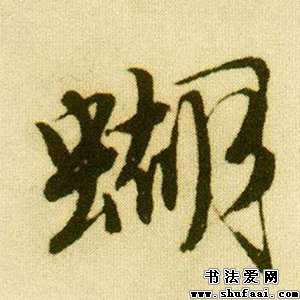 蝴
书法爱网
www.shufaai.com